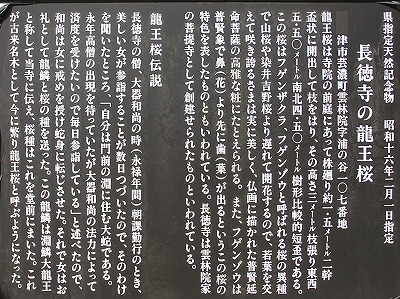 県指定天然記念物　昭和十六年二月一日指定
長徳寺の龍王桜
津市芸濃町雲林院字浦の谷一〇七番地
龍王桜は寺院の前庭にあって株廻り約一・五メートル二幹
盃状に開出して枝をはり、その高さ三メートル枝張り東西
五・五メートル南北四・五メートル樹形比較的短歪である。
この桜はフゲンザクラ、フゲンゾウと呼ばれる桜の異種
で山桜や染井吉野桜より遅れて開花するので、若葉を交
えて咲き誇るさまは実に美しく、仏画に描かれた普賢延
命菩薩の高雅な粧にたとえられる。また、フゲンゾウは
普賢象で鼻（花）より先に歯（葉）が出るというこの桜の
特色を表したものともいわれている。長徳寺は雲林院家
の菩提寺として創建せられたものといわれている。
龍王桜伝説
長徳寺の僧、大器和尚の時（永禄年間）、朝課勤行のとき、
美しい女が参詣することが数日つづいたので、そのわけ
を聞いたところ、「自分は門前の淵に住む大蛇である。
永年高僧の出現を待っていたが大器和尚の法力によって
済度を受けたいので毎日参詣している」と述べたので、
和尚は女に戒めを授け蛇身に転じさせた。それで女はお
礼として龍鱗と桜の種を送った。この龍鱗は淵鱗大龍王
と称して当寺に伝え、桜種はこれを堂前にまいた。これ
が古来名木として今に繁り龍王桜と呼ぶようになった。